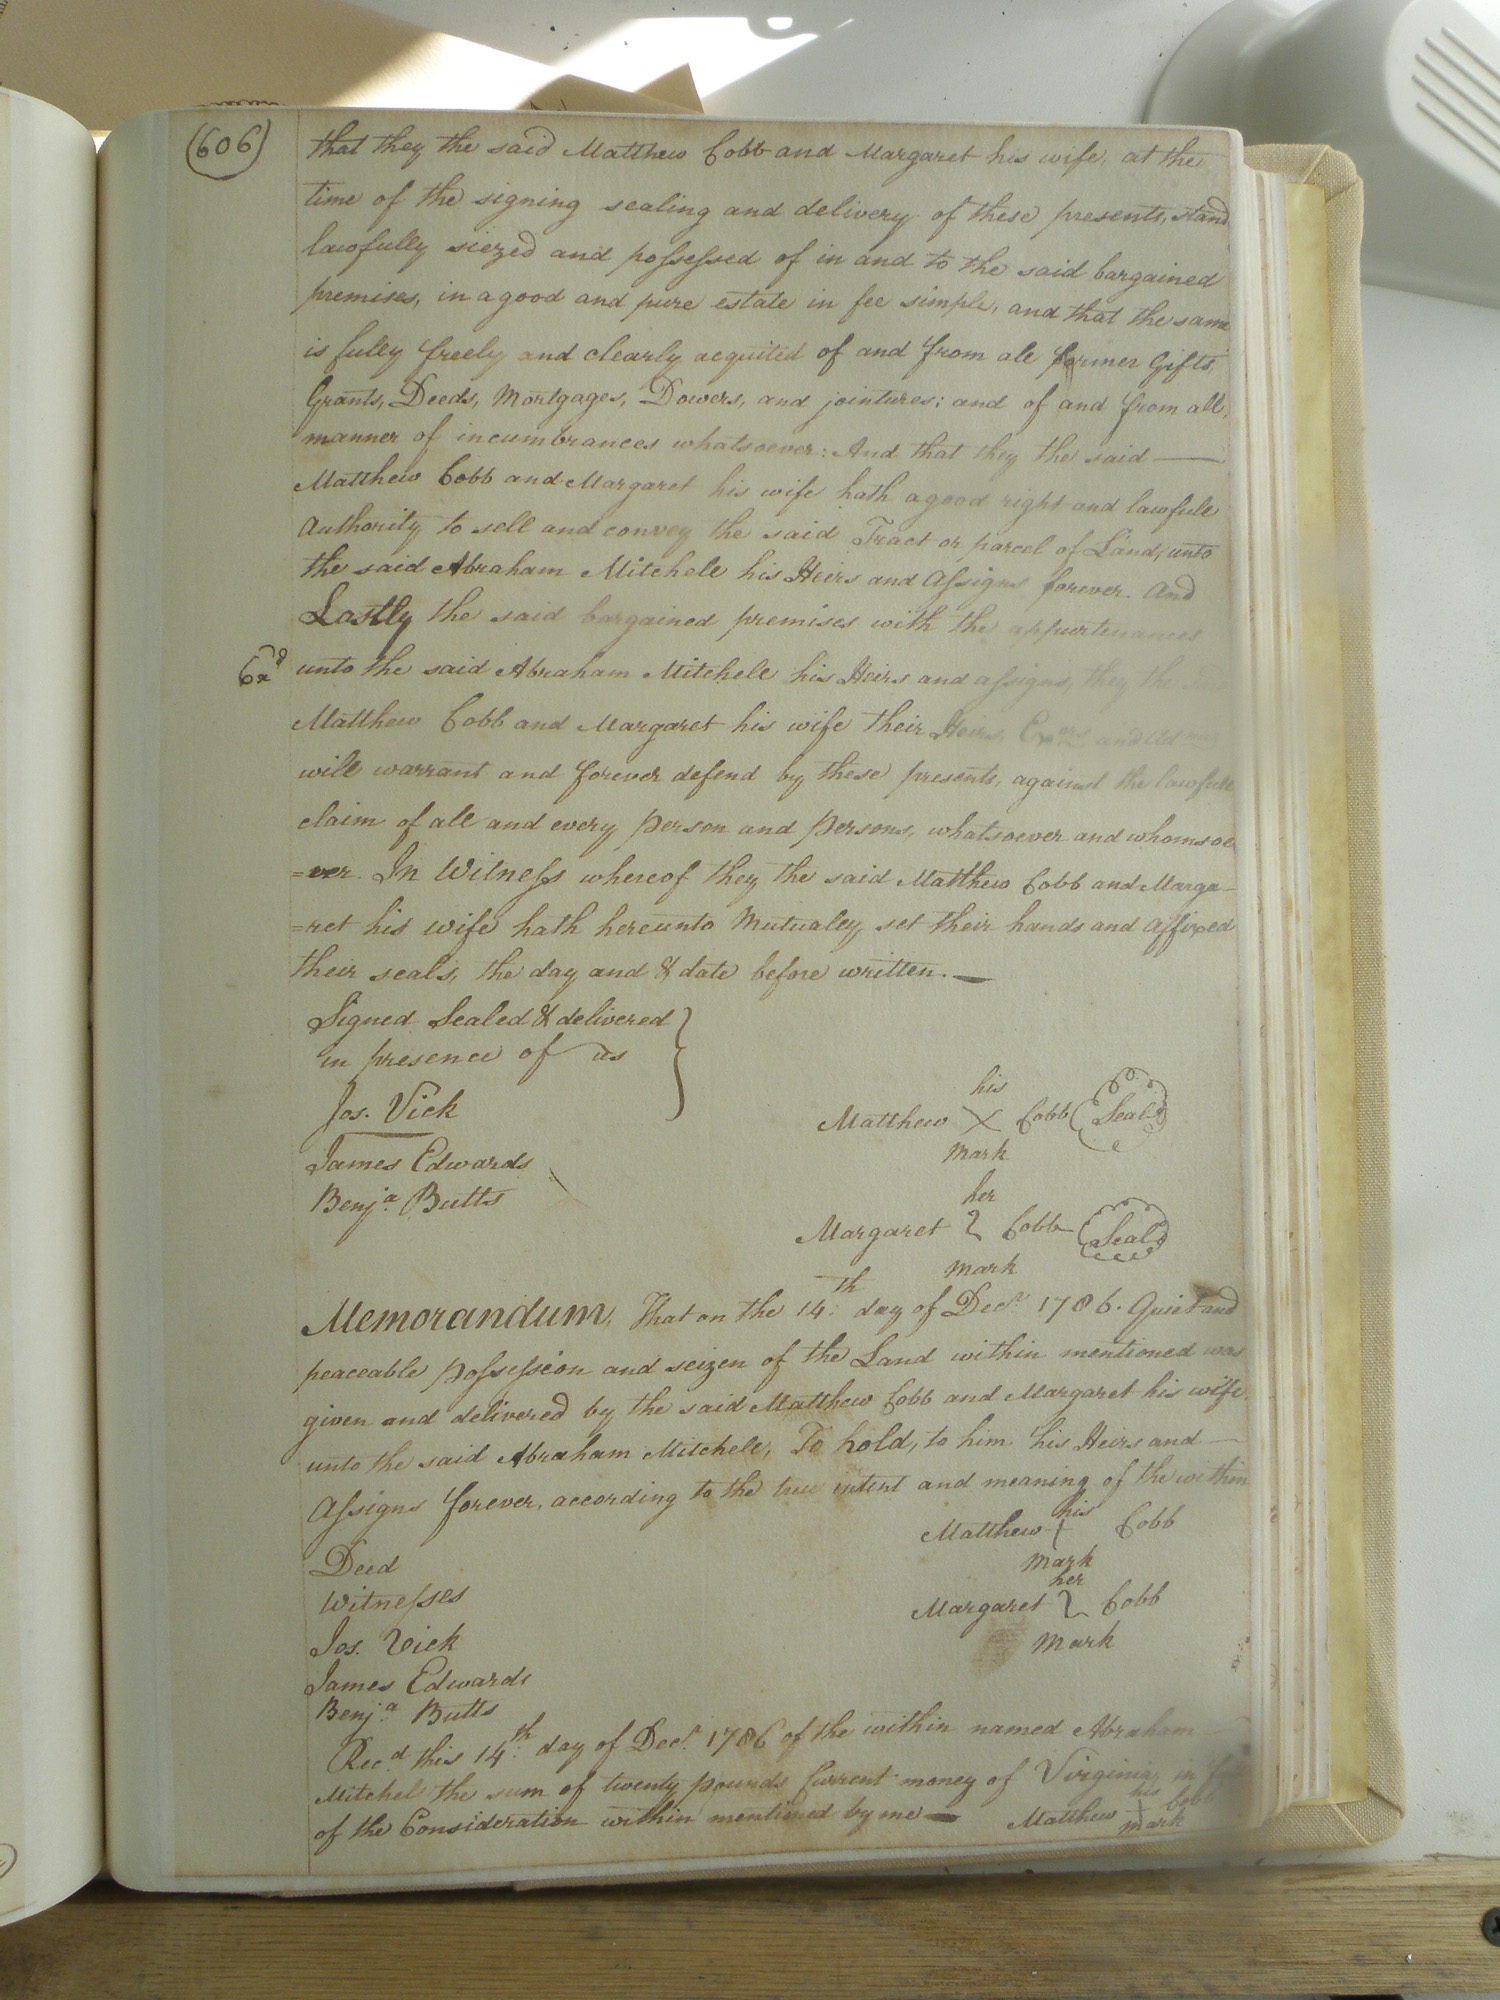 (606)
that they the said Matthew Cobb and Margaret his wife, at the
time of the signing sealing and delivery of these presents, stand
lawfully siezed and possessed of in and to the said bargained
premises, in a good and pure estate in fee simple, and that the same
is fully freely and clearly acquited of and from all former Gifts,
Grants, Deeds, Mortgages, Dowers, and jointures; and of and from all
manner of incumbrances whatsoever: And that they the said
Matthew Cobb and Margaret his wife hath a good right and lawfull
Authority to sell and convey the said Tract or parcel of Land, unto
the said Abraham Mitchell his Heirs and Assigns forever. And
Lastly the said bargained premises with the appurtenances
Exd unto the said Abraham Mitchell his Heirs and assigns, they the
Matthew Cobb and Margaret his wife their Heirs, Exors and Admrs
will warrant and forever defend by these presents, against the lawfull
claim of all and every person and persons, whatsoever and whomsoe
=ver. In Witness whereof they the said Matthew Cobb and Marga-
=ret his wife hath hereunto Mutually set their hands and affixed
their seals, the day and & date before written.
Signed Sealed & delivered
in presence of us
Jos. Vick
James Edwards
Benja. Butts
his
Matthew X Cobb Seal
mark
her
Margaret 2 Cobb Seal
mark
Memorandum, That on the 14th day of Decr. 1786. Quiet and
peaceable possession and seizen of the Land within mentioned was
given and delivered by the said Matthew Cobb and Margaret his wife,
unto the said Abraham Mitchell, To hold, to him his Heirs and
Assigns forever, according to the true intent and meaning of the within
Deed
his
Matthew + Cobb
mark
her
Margaret 2 Cobb
mark
Witnesses
Jos. Vick
James Edwards
Benja. Butts
Recd. this 14th day of Decr. 1786 of the within named Abraham
Mitchel the sum of twenty pounds Current money of Virginia, in full
of the Consideration within mentioned by me
his
Matthew + Cobb
mark